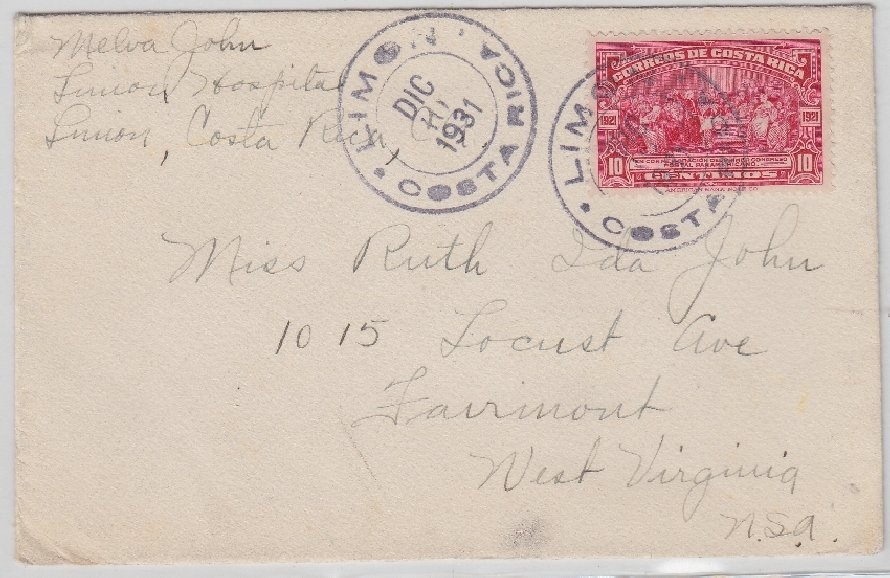 Melva John
Limon Hospital
Limon, Costa Rica
LIMON
DIC
1931
COSTA RICA
CORREOS DE COSTA RICA
1921 1921
EN CONMEMORACION DEL PRIMER CONGRESO
POSTAL PANAMERICANO
10 CENTIMOS 10
AMERICAN BANK NOTE CO.
LIMON
COSTA
Miss Ruth Ida John
1015 Locust Ave
Fairmont
West Virginia
U.S.A.